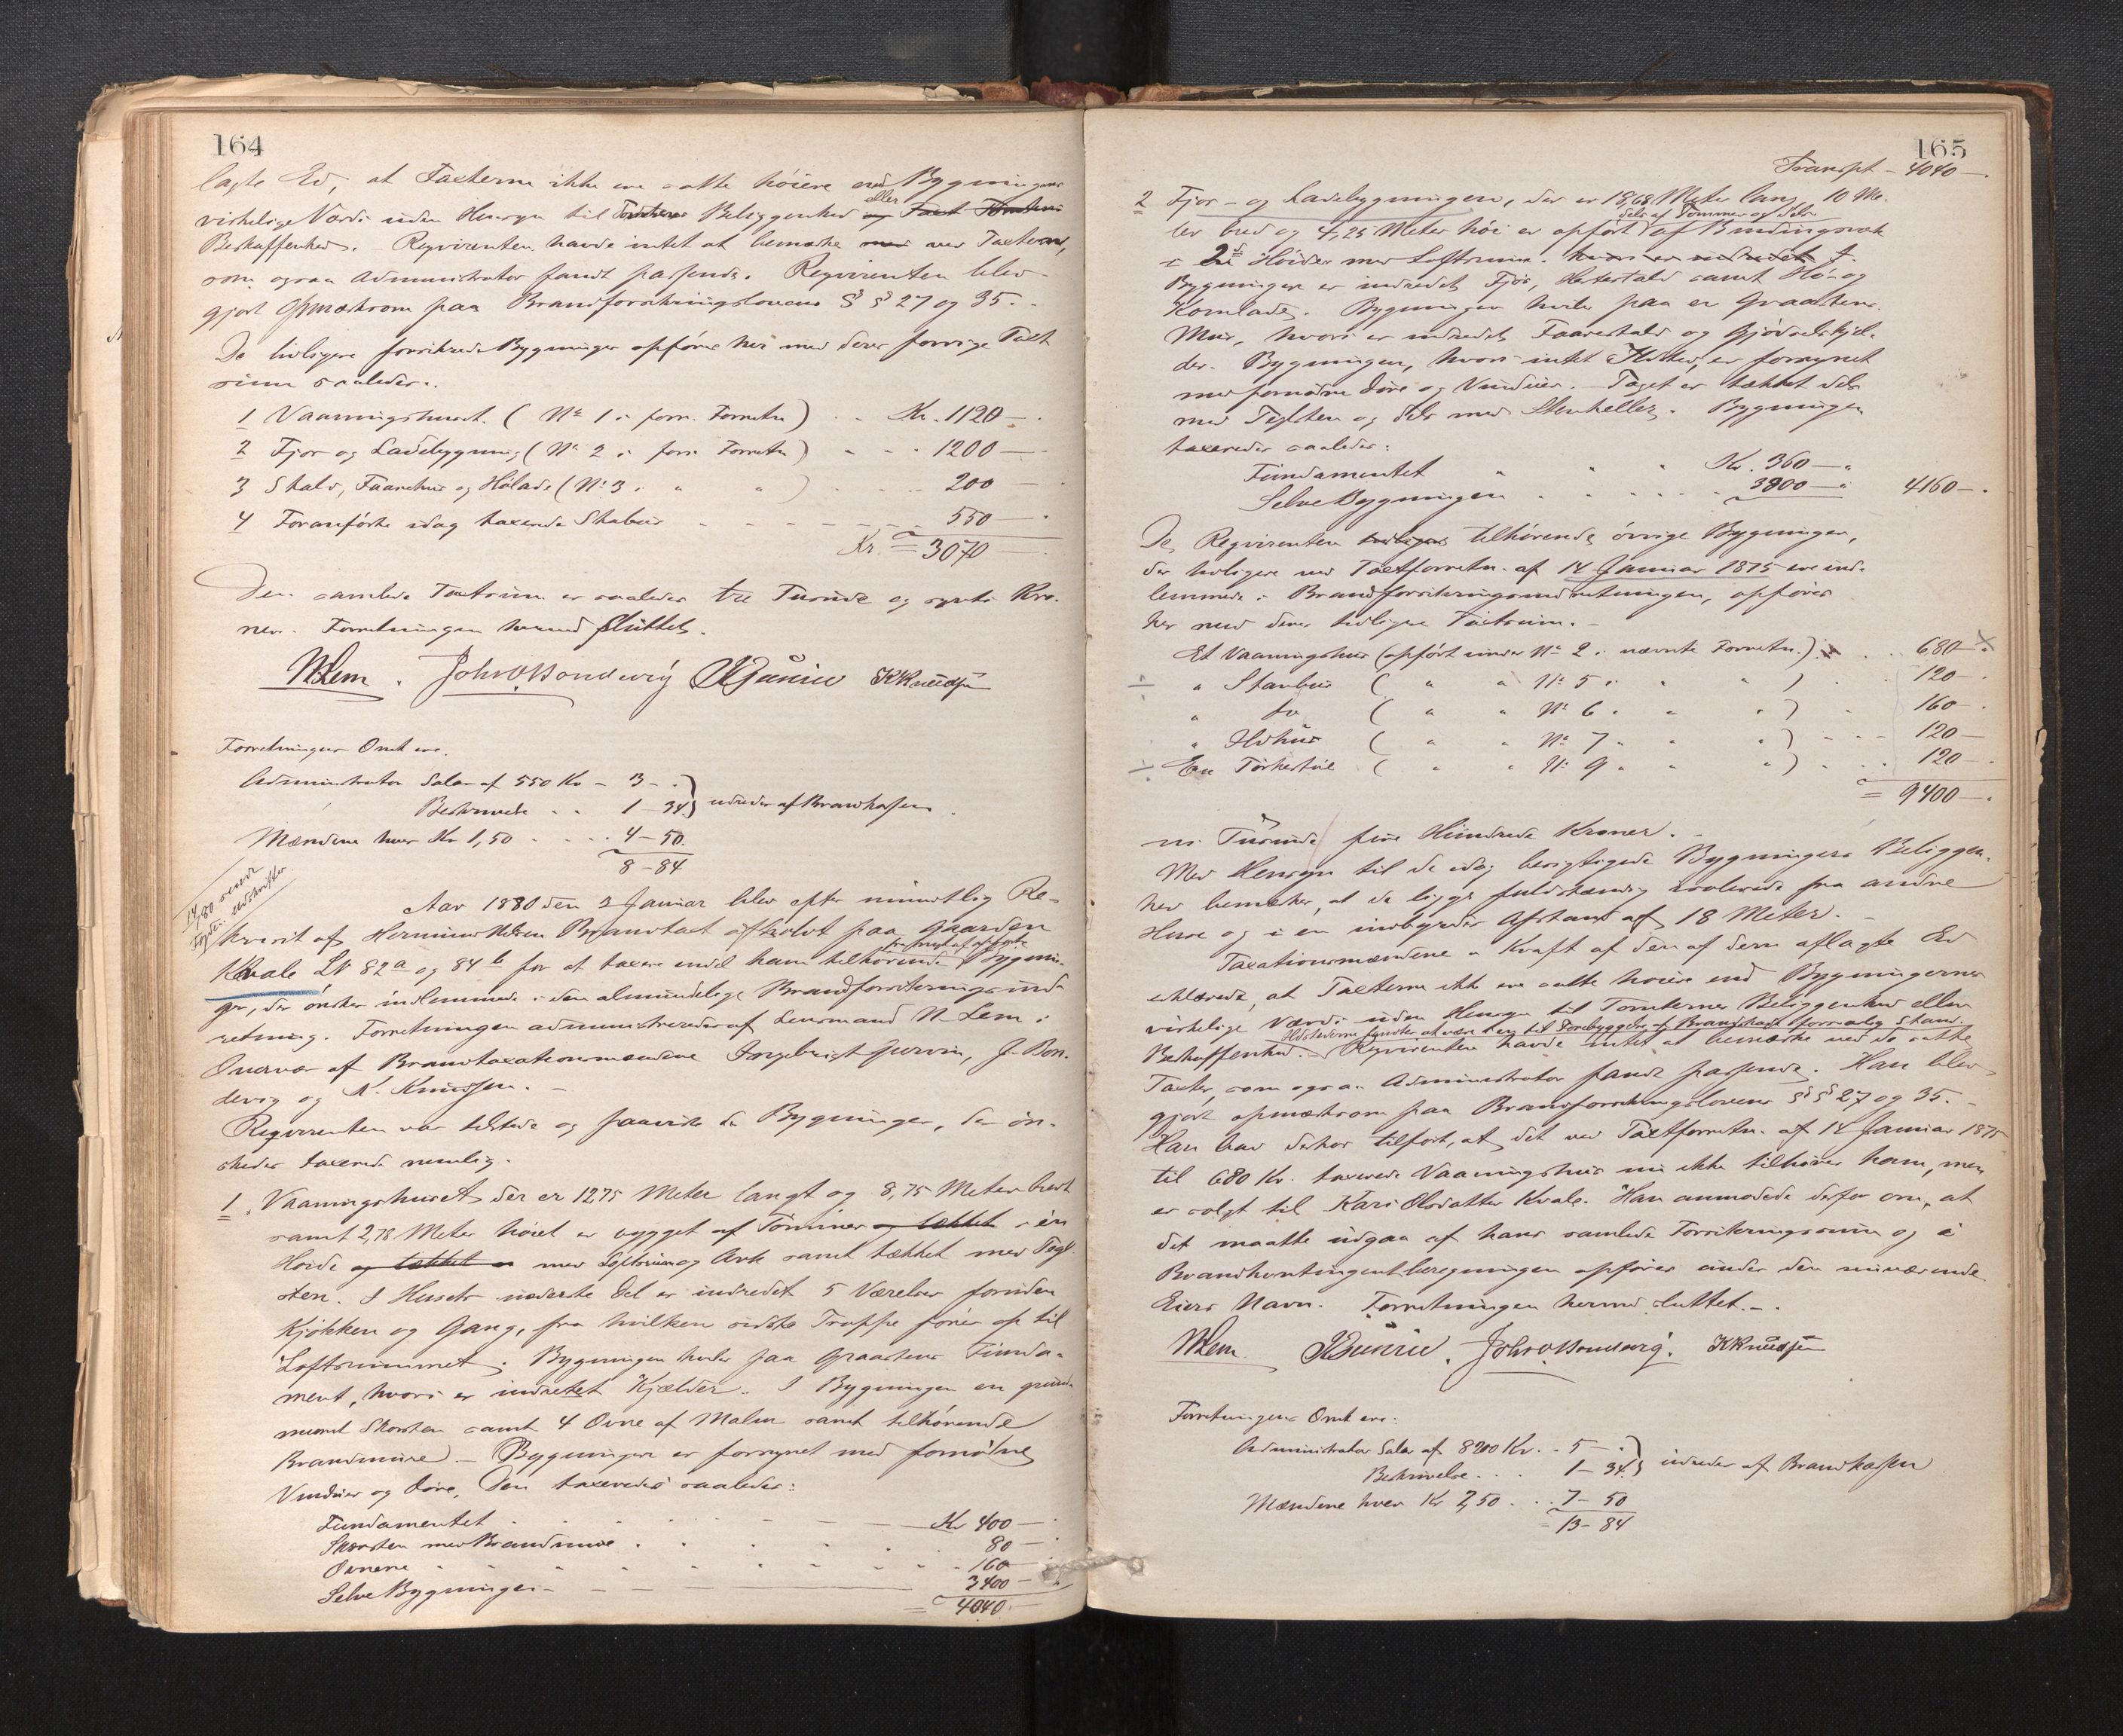 164
lagte Ed, at Taxterne ikke ere satte høiere end Bygningernes
virkelige Værdi uden Hensyn til Tomternes Beliggenhed eller
Beskaffenhed. Reqvirenten havde intet at bemærke ved Taxterne,
som ogsaa Administrator fandt passende. Reqvirenten blev
gjort opmærksom paa Brandforsikringslovens §§ 27 og 35.
De tidligere forsikrede Bygninger opføres her med deres forrige Taxt
sum saaledes.
1 Vaaningshuset. (No 1 i forr. Forretn) Kr. 1120 —
2 Fjør og Ladebygning (No 2 i forr. Forretn) 1200 —
3 Stald, Faarehus og Hølade (No 3 " " ) 200 —
4 Foranførte idag taxerede Stabur 550 —
Kr. = 3070
Den samlede Taxtsum er saaledes tre Tusinde og sytti Kro-
ner. Forretningen hermed sluttet.
NLem. JohnOBondevig IGurvin KKnudsen
Forretningens Omk. ere.
Administrator Salar af 550 Kr – 3 –
Beskrivelse 1 – 34 udredes af Brandkassen.
Mændene hver Kr 1,50 4 – 50.
8 – 84
Aar 1880 den 2 Januar blev efter mundtlig Re-
kvisit af Herminus Nilsen Brandtaxt afholdt paa Gaarden
Kvale LN 82a og 84b for at taxere endel ham tilhørende Bygnin-
ger, der ønskes indlemmede i den almindelige Brandforsikringsind-
retning. Forretningen administreredes af Lensmand N. Lem i
Overvær af Brandtaxationsmændene Ingebrigt Gurvin, J. Bon-
devig og K. Knudsen. –
Reqvirenten var tilstede og paaviste de Bygninger, der øn-
skedes taxerede nemlig.
1. Vaaningshuset der er 12,75 Meter langt og 8,75 Meter bredt
samt 2,78 Meter høiet er bygget af Tømmer og tækket i én
Høide og tækket med Loftsrum og Ark samt tækket med Tegl-
sten. I Husets nederste Del er indredet 5 Værelser foruden
Kjøkken og Gang, fra hvilken sidste Trappe fører op til
Loftsrummet. Bygningen hviler paa Graastens Funda-
ment, hvori er indrettet Kjælder. I Bygningen en grund-
muret Skorsten samt 4 Ovne af Malm samt tilhørende
Brandmure. – Bygningen er forsynet med fornødne
Vinduer og Døre. Den taxeredes saaledes:
Fundamentet Kr 400 —
Skorsten med Brandmure 80 —
Ovnene 160 —
Selve Bygningen 3400 —
= 4040
165
Transpt – 4040 —
2 Fjør – og Ladebygningen, der er 18,68 Meter lang, 10 Me-
dels af Tømmer og dels
ter bred og 4,25 Meter høi er opført af Bindingsværk
i 2de Høider med Loftsrum. hvori er indredet I
Bygningen er indredet Fjøs, Hestestald samt Hø- og
Kornlade. Bygningen hviler paa en Graastens-
Mur, hvori er indredet Faarestald og Gjødselskjel-
der. Bygningen, hvori intet Ildsted, er forsynet
med fornødne Døre og Vinduer. – Taget er tækket dels
med Teglsten og dels med Stenheller. Bygningen
taxeredes saaledes:
Fundamentet Kr. 360 —
Selve Bygningen 3800 — 4160 —
De Reqvirenten tidligere tilhørende øvrige Bygninger,
der tidligere ved Taxtforretn. af 14 Januar 1875 ere ind-
lemmede i Brandforsikringsindretningen, opføres
her med deres tidligere Taxtsum. –
Et Vaaningshus (opført under No 2 i nævnte Forretn.) 680
÷ " Stabur ( " " No 5 " " ) 120 —
" do ( " " No 6 " " ) 160 —
" Ildhus ( " " No 7 " " ) 120 —
÷ En Tørkestue ( " " No 9 " " ) 120 —
= 9400 —
ni Tusinde fire Hundrede Kroner. –
Med Hensyn til de idag besigtigede Bygningers Beliggen-
hed bemærkes, at de ligge fuldstændig isolerede fra andre
Huse og i en indbyrdes Afstand af 18 Meter. –
Taxationsmændene i Kraft af den af dem aflagte Ed
erklærede, at Taxterne ikke ere satte høiere end Bygningernes
virkelige Værdi uden Hensyn til Tomternes Beliggenhed eller
Ildstederne fandtes at være i til Forebyggelse af Brandskade forsvarlig Stand.
Beskaffenhed. – Reqvirenten havde intet at bemærke ved de satte
Taxter, som ogsaa Administrator fandt passende. Han blev
gjort opmærksom paa Brandforsikringslovens §§ 27 og 35. –
Han har derhos tilført, at det ved Taxtforretn. af 14 Januar 1875
til 680 Kr. taxerede Vaaningshus nu ikke tilhører ham, men
er solgt til Kari Olsdatter Kvale. Han anmodede derfor om, at
det maatte udgaa af hans samlede Forsikringssum og i
Brandkontingentberegningen opføres under den nuværende
Eiers Navn. Forretningen hermed sluttet. –
NLem. IGurvin. JohnOBondevig. KKnudsen
Forretningens Omk ere:
Administrator Salar af 8200 Kr. 5 —
Beskrivelse 1 – 34 udredes af Brandkassen
Mændene hver Kr 2,50 7 – 50
13 – 84